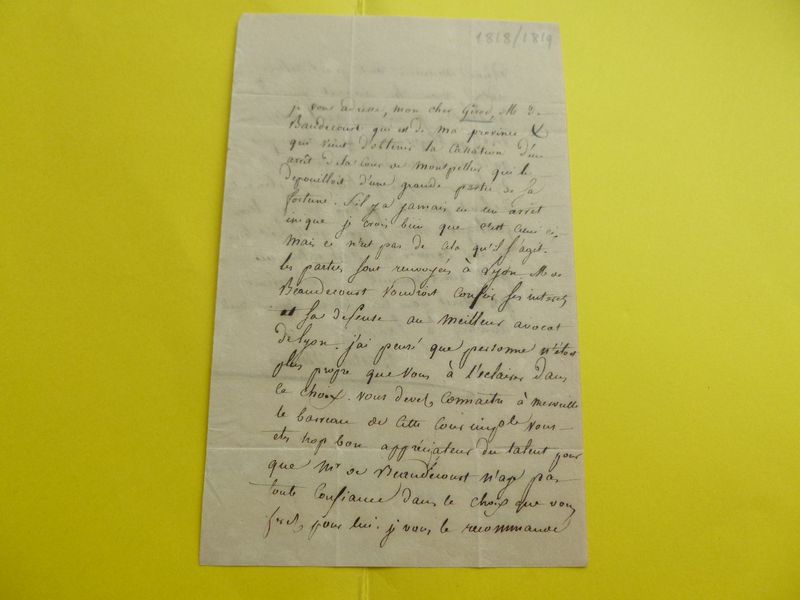 1818/1819
je vous adresse, mon cher Girod, M de
Baudecourt qui est de ma province X
qui vient d'obtenir la Cassation d'un
arrêt de la cour de Montpellier qui le
depouilloit d'une grande partie de sa
fortune. S'il y a jamais eu un arrêt
inique je crois bien que c'est celui ci
Mais ce n'est pas de cela qu'il s'agit.
les parties sont renvoyés à Lyon. M de
Beaudecourt voudroit confier ses interets
et sa défense au meilleur avocat
de Lyon. j'ai pensé que personne n'étoit
plus propre que vous à l'eclairer dans
ce choix. vous devez connaitre à merveille
le barreau de cette Cour vous
etes trop bon appréciateur du talent pour
que Mr de Beaudecourt n'aye pas
toute Confiance dans le choix que vous
ferez pour lui. je vous le recommande